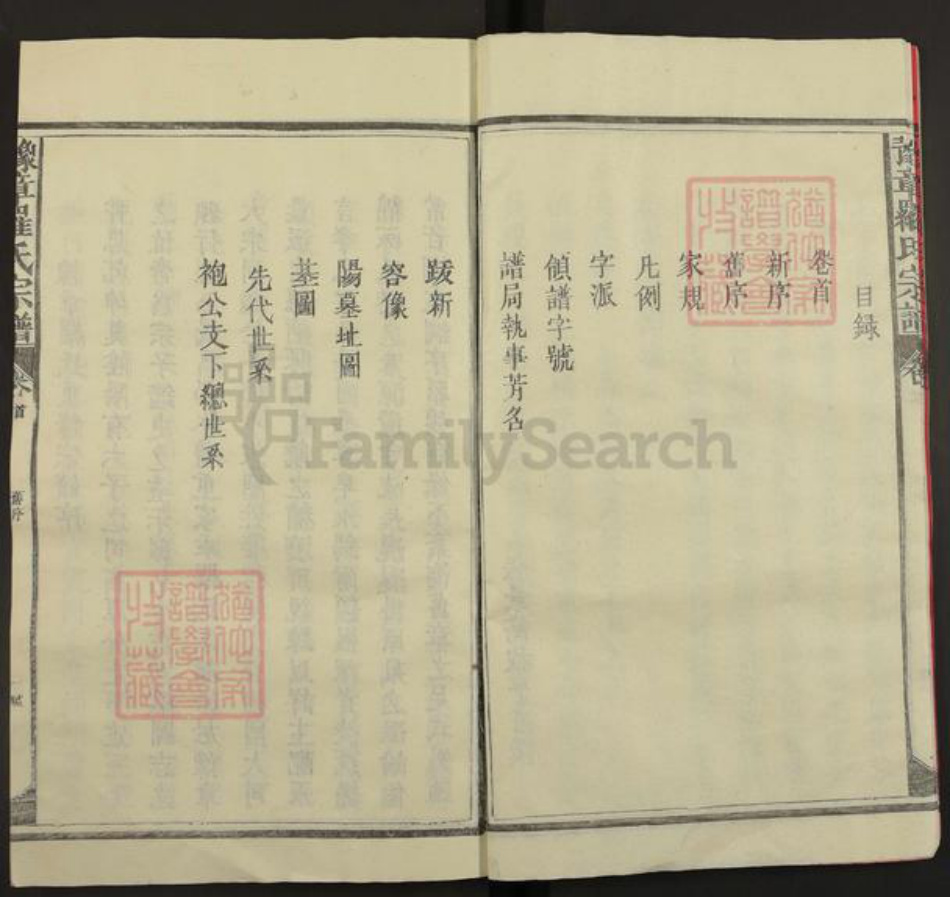 豫章羅氏宗譜
目録
卷首
新序
舊序
家規
凡例
字派
領譜字號
譜局執事芳名
跋新
容像
陽墓址圖
墓圖
先代世系
袍公支下總世系
豫章羅氏宗譜
卷首
舊序
猶他家譜學會收藏
猶他家譜學會收藏
FamilySearch